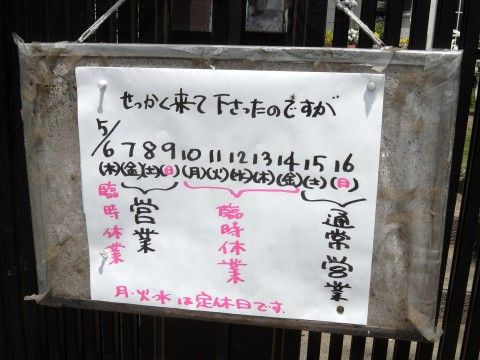 せっかく来て下さったのですが
5/6 7 8 9 10 11 12 13 14 15 16
(木)(金)(土)(日)(月)(火)(水)(木)(金)(土)(日)
臨時休業
営業
臨時休業
通常営業
月・火・水は定休日です.